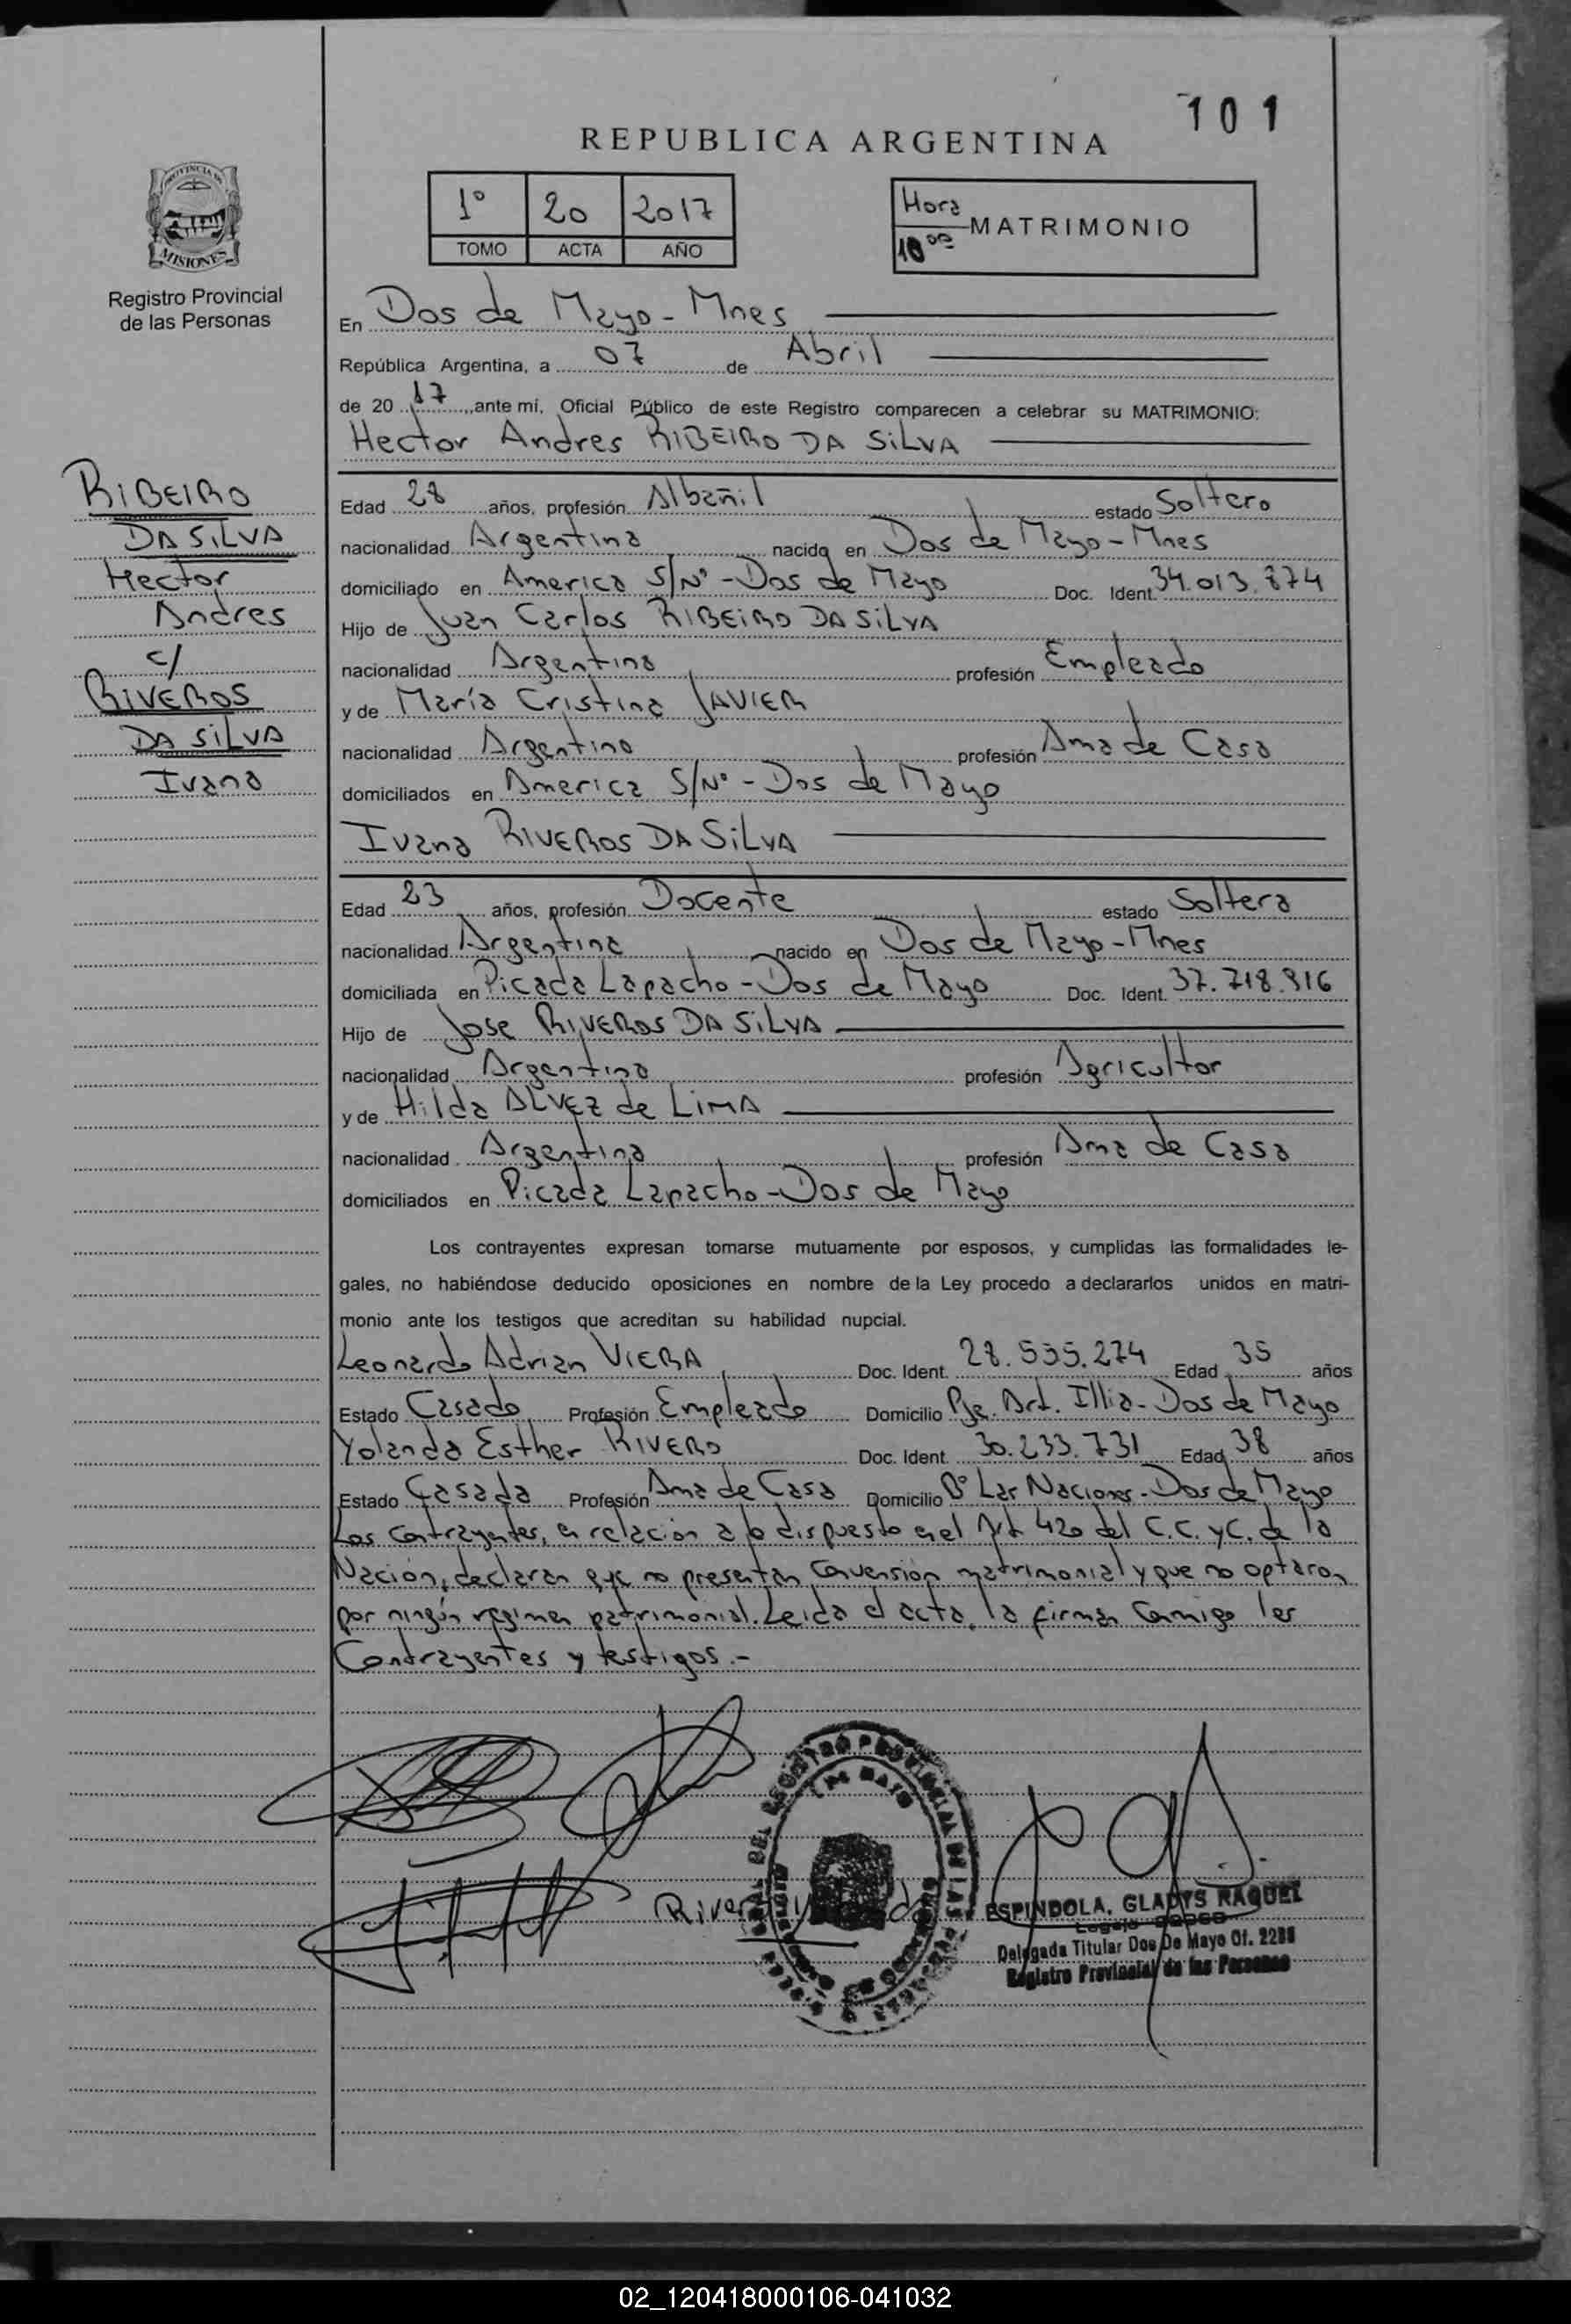 101
REPUBLICA ARGENTINA
1º 20 2017
TOMO ACTA AÑO
Hora
10 00
MATRIMONIO
PROVINCIA DE
MISIONES
Registro Provincial
de las Personas
En Dos de Mayo - Mnes
República Argentina, a 07 de Abril
de 20 17, ante mí, Oficial Público de este Registro comparecen a celebrar su MATRIMONIO:
Hector Andres RIBEIRO DA SILVA
RIBEIRO
DA SILVA
Hector
Andres
c/
RIVEROS
DA SILVA
Ivana
Edad 28 años, profesión Albañil estado Soltero
nacionalidad Argentina nacido en Dos de Mayo - Mnes
domiciliado en America S/Nº - Dos de Mayo Doc. Ident. 34.013.874
Hijo de Juan Carlos RIBEIRO DA SILVA
nacionalidad Argentina profesión Empleado
y de María Cristina JAVIER
nacionalidad Argentina profesión Ama de Casa
domiciliados en America S/Nº - Dos de Mayo
Ivana RIVEROS DA SILVA
Edad 23 años, profesión Docente estado Soltera
nacionalidad Argentina nacido en Dos de Mayo - Mnes
domiciliada en Picada Lapacho - Dos de Mayo Doc. Ident. 37.718.916
Hijo de Jose RIVEROS DA SILVA
nacionalidad Argentina profesión Agricultor
y de Hilda ALVEZ de LIMA
nacionalidad Argentina profesión Ama de Casa
domiciliados en Picada Lapacho - Dos de Mayo
Los contrayentes expresan tomarse mutuamente por esposos, y cumplidas las formalidades le-
gales, no habiéndose deducido oposiciones en nombre de la Ley procedo a declararlos unidos en matri-
monio ante los testigos que acreditan su habilidad nupcial.
Leonardo Adrian VIERA Doc. Ident. 28.535.274 Edad 35 años
Estado Casado Profesión Empleado Domicilio Pje. Art. Illia - Dos de Mayo
Yolanda Esther RIVERO Doc. Ident. 30.233.731 Edad 38 años
Estado Casada Profesión Ama de Casa Domicilio Bº Las Naciones - Dos de Mayo
Los contrayentes, en relación a lo dispuesto en el Art. 420 del C.C. y C. de la
Nación, declaran que no presentan convensión matrimonial y que no optaron
por ningún régimen patrimonial. Leida el acta, la firman conmigo los
Contrayentes y testigos.-
ESPINDOLA, GLADYS RAQUEL
Delegada Titular Dos De Mayo Of. 2285
Registro Provincial de las Personas
02_120418000106-041032